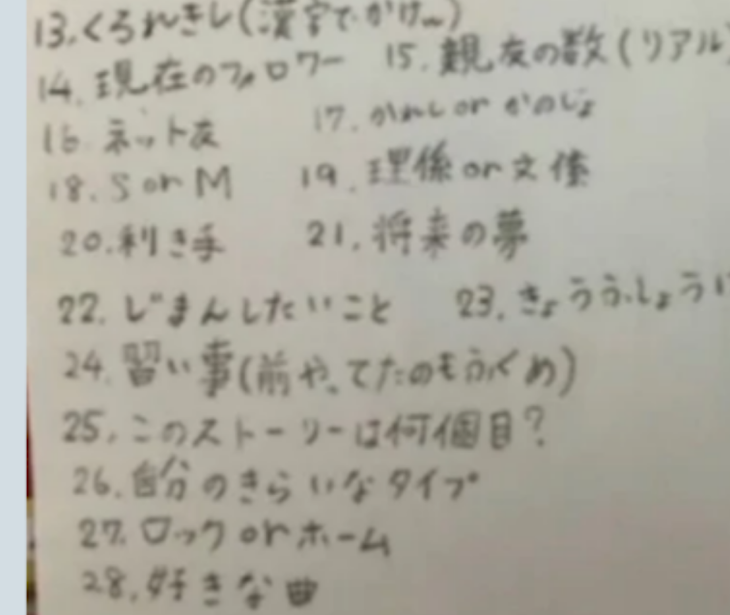 13.くろれきし(漢字でかけ~)
14.現在のフォロワー 15.親友の数(リアル)
16.ネット友 17.かれしorかのじょ
18.SorM 19.理係or文係
20.利き手 21.将来の夢
22.じまんしたいこと 23.きょうふしょう
24.習い事(前や、てたのもふくめ)
25.このストーリーは何個目?
26.自分のきらいなタイプ
27.ロックorホーム
28.好きな曲